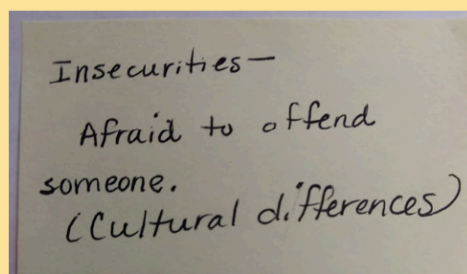 Insecurities—
Afraid to offend
someone.
(Cultural differences)